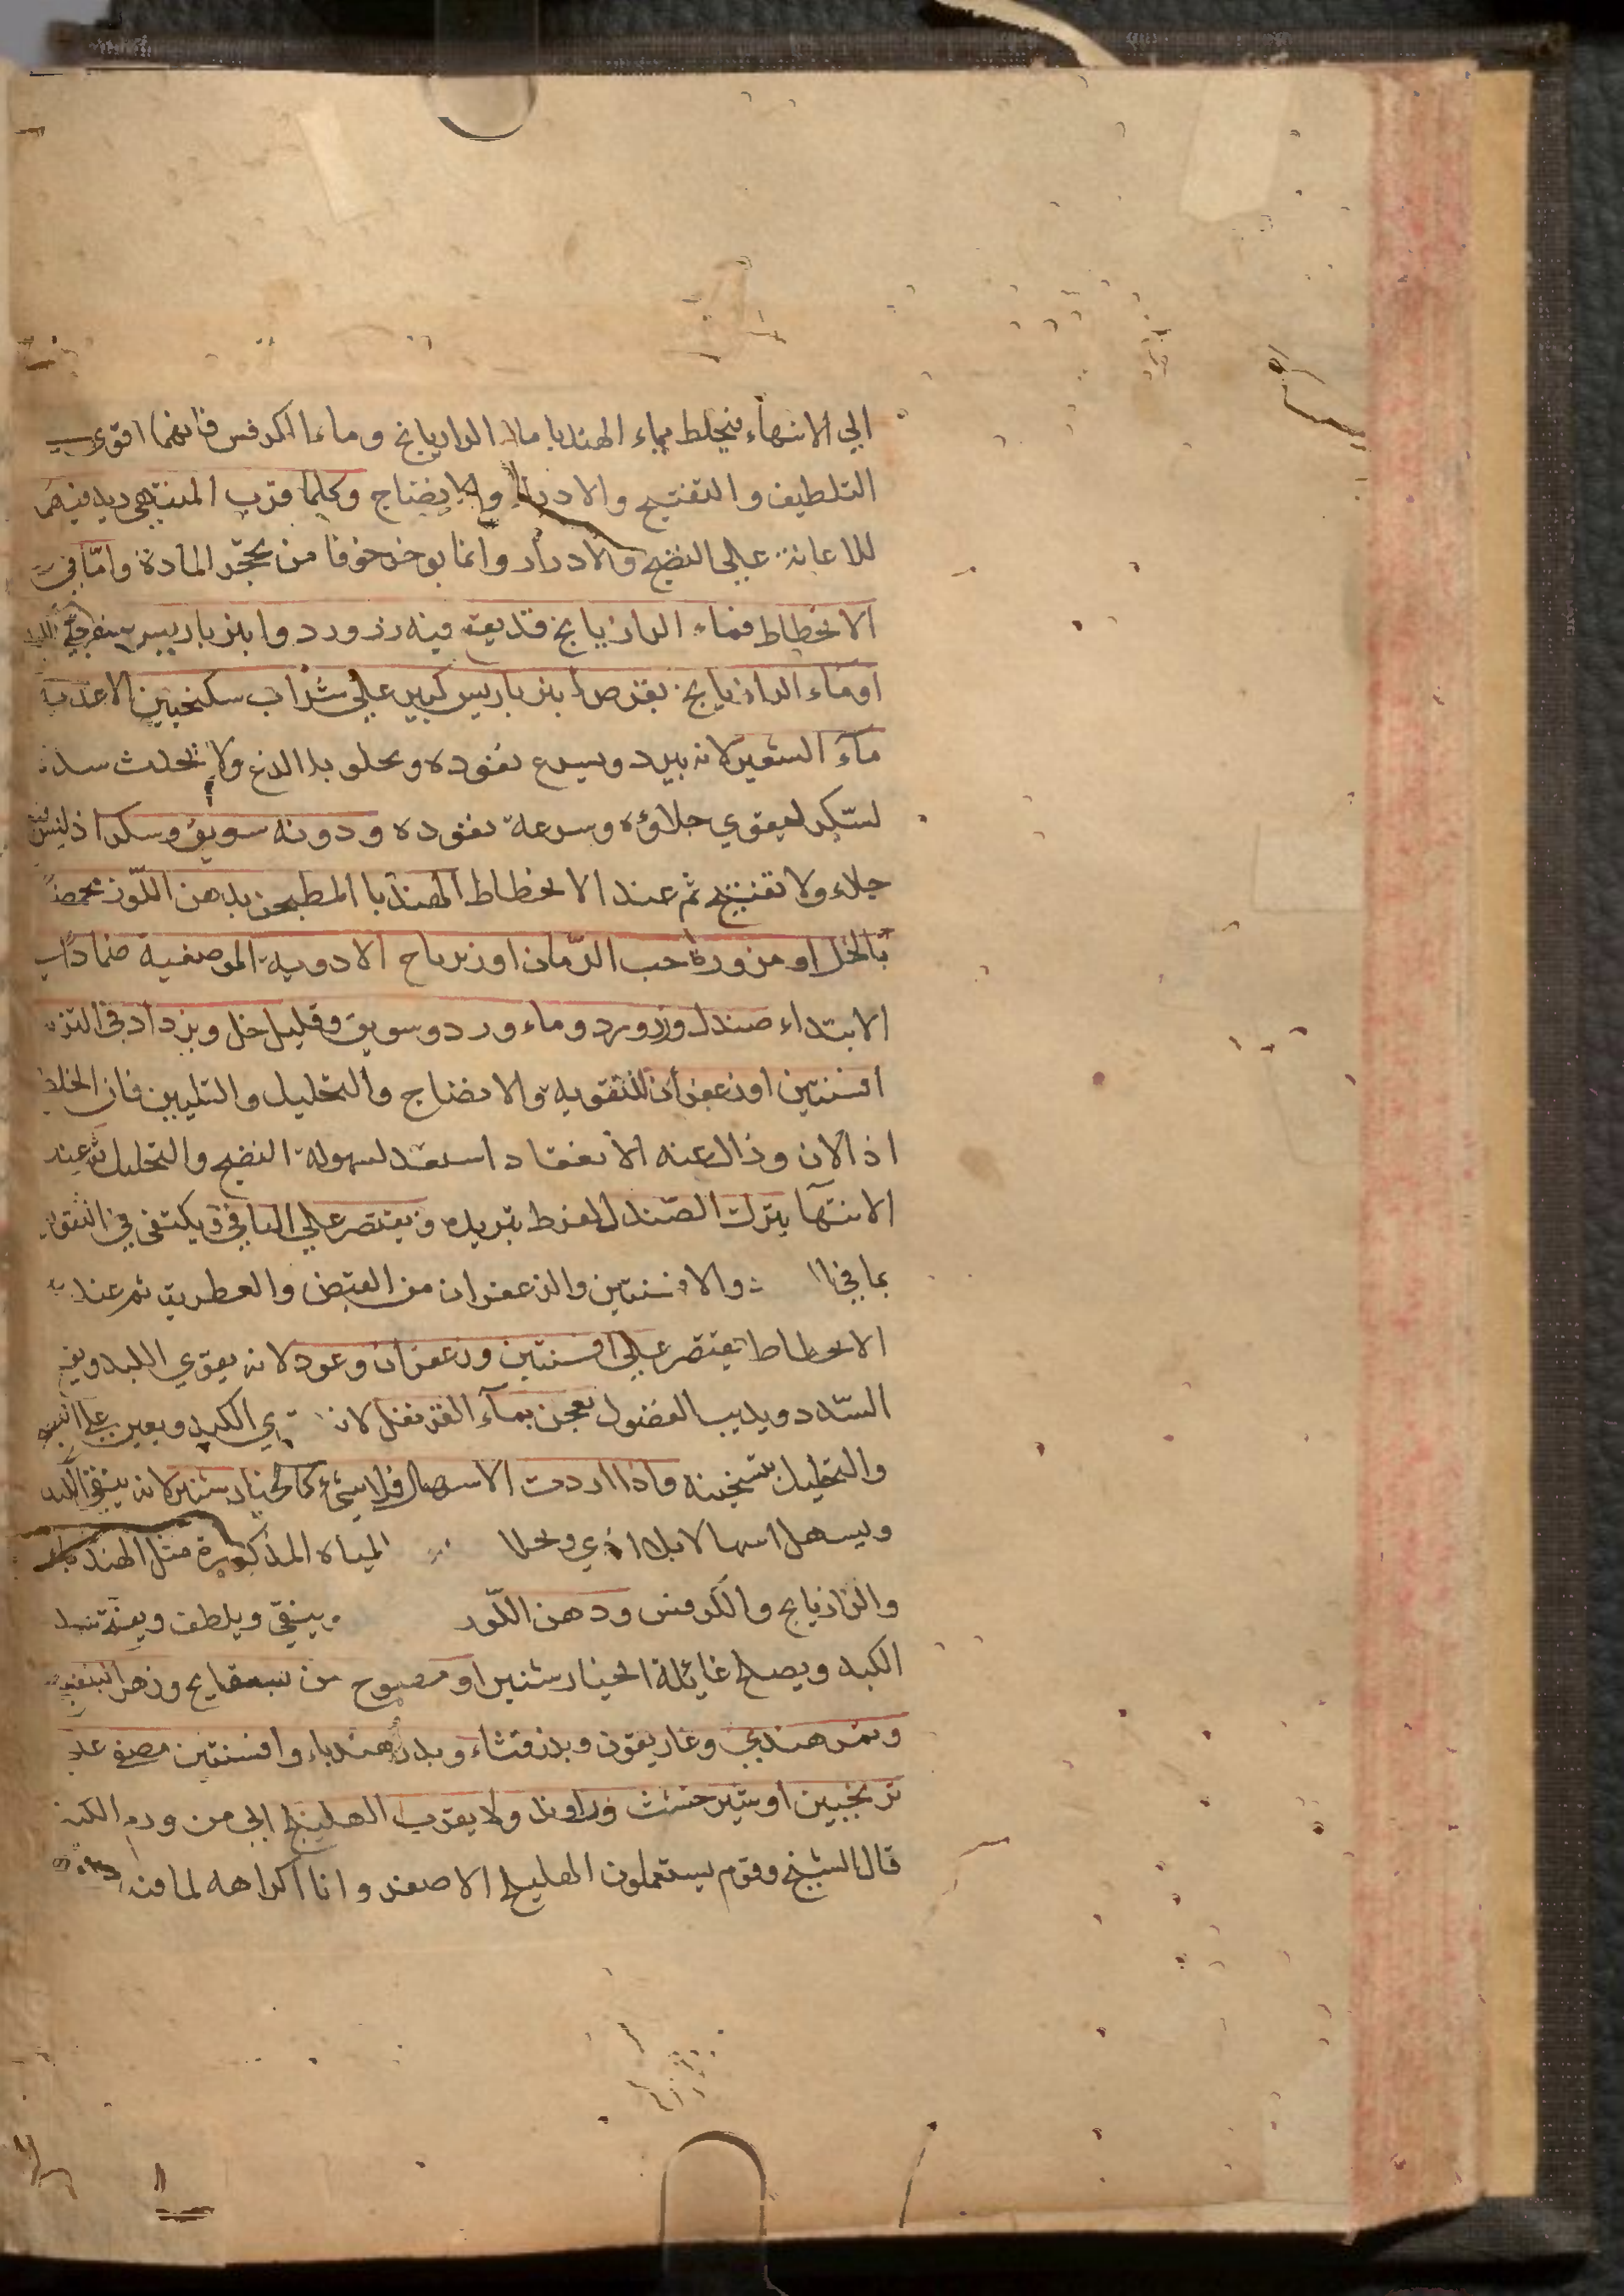 الي الانتهاء فيخلط بماء الهندبا ماء الرازيانج وماء الكرفس فانهما اقوي في
التلطيف والتفتيح والادرار والانضاج وكلما قرب المنتهي زيد فيهما
للاعانة علي النضج والادرار وانما يوخر خوفا من تحجر المادة واما في
الانحطاط فماء الرازيانج قد يقع فيه زرورد وانبرباريس
او ماء الرازيانج بقرص انبرباريس كبير علي شراب سكنجبين الاغذية
ماء الشعير لانه يبرد ويسرع نفوذه ويجلو بلا لذع ولا يحدث سدة
لسكر ليقوي جلاؤه وسرعة نفوذه ودونه سويق وسكر اذ ليس فيه
جلاء ولا تفتيح ثم عند الانحطاط الهندبا المطبخن بدهن اللوز محمضا
بالخل او مزورة حب الرمان او زيرباج الادوية الموضعية ضمادا في
الابتداء صندل وزرورد وماء ورد وسويق وقليل خل ويزداد في التزيد
افسنتين او زعفران للتقوية والانضاج والتحليل والتليين فان الخلط
اذ الان وزال عنه الانعقاد استعد لسهولة النضج والتحليل ثم عند
الانتها يترك الصندل لفرط تبريده ويقتصر علي الباقي ويكتفي في التقوية
بما في والافسنتين والزعفران من القبض والعطرية ثم عند
الانحطاط يقتصر علي افسنتين وزعفران وعود لانه يقوي الكبد ويفتح
السدد ويذيب الفضول يعجن بماء القرنفل لانه الكبد ويعين علي
والتحليل بتسخينه واذا اردت الاسهال فلا شيء كالخيار شنبر لانه ينقي الكبد
ويسهل اسهالا بلا اذي ويحلا المياه المذكورة مثل الهندباء
والرازيانج والكرفس ودهن اللوز وينقي ويلطف ويفتح سدد
الكبد ويصلح غايلة الخيار شنبر او مصبوح من بسفايج وزهر البنفسج
وتمر هندي وغاريقون وبذر قثاء وبذر هندباء وافسنتين مصفي علي
ترنجبين او شير خشت وراوند ولا يقرب الهليلج الي من ورم الكبد
قال الشيخ وقوم يستعملون الهليلج الاصفر وانا اكرهه لما فيه